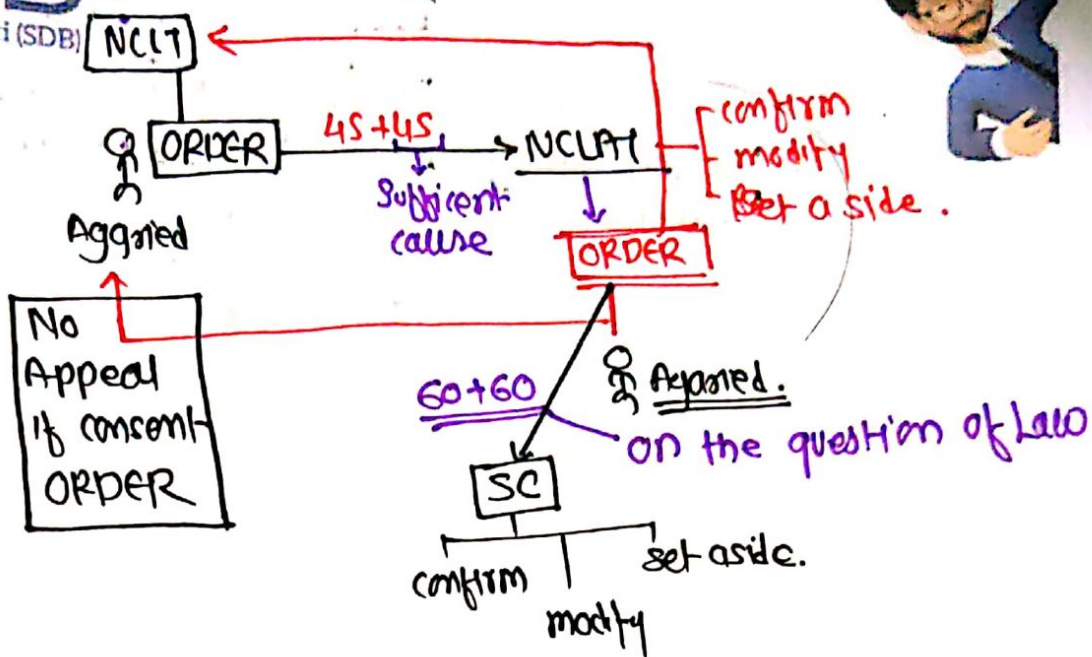 i (SDB)
NCLT
ORDER
45+45
NCLAT
confirm
modify
set a side.
Sufficent
cause
Aggried
ORDER
No
Appeal
if consent
ORDER
60+60
on the question of Law
SC
confirm
modify
set aside.